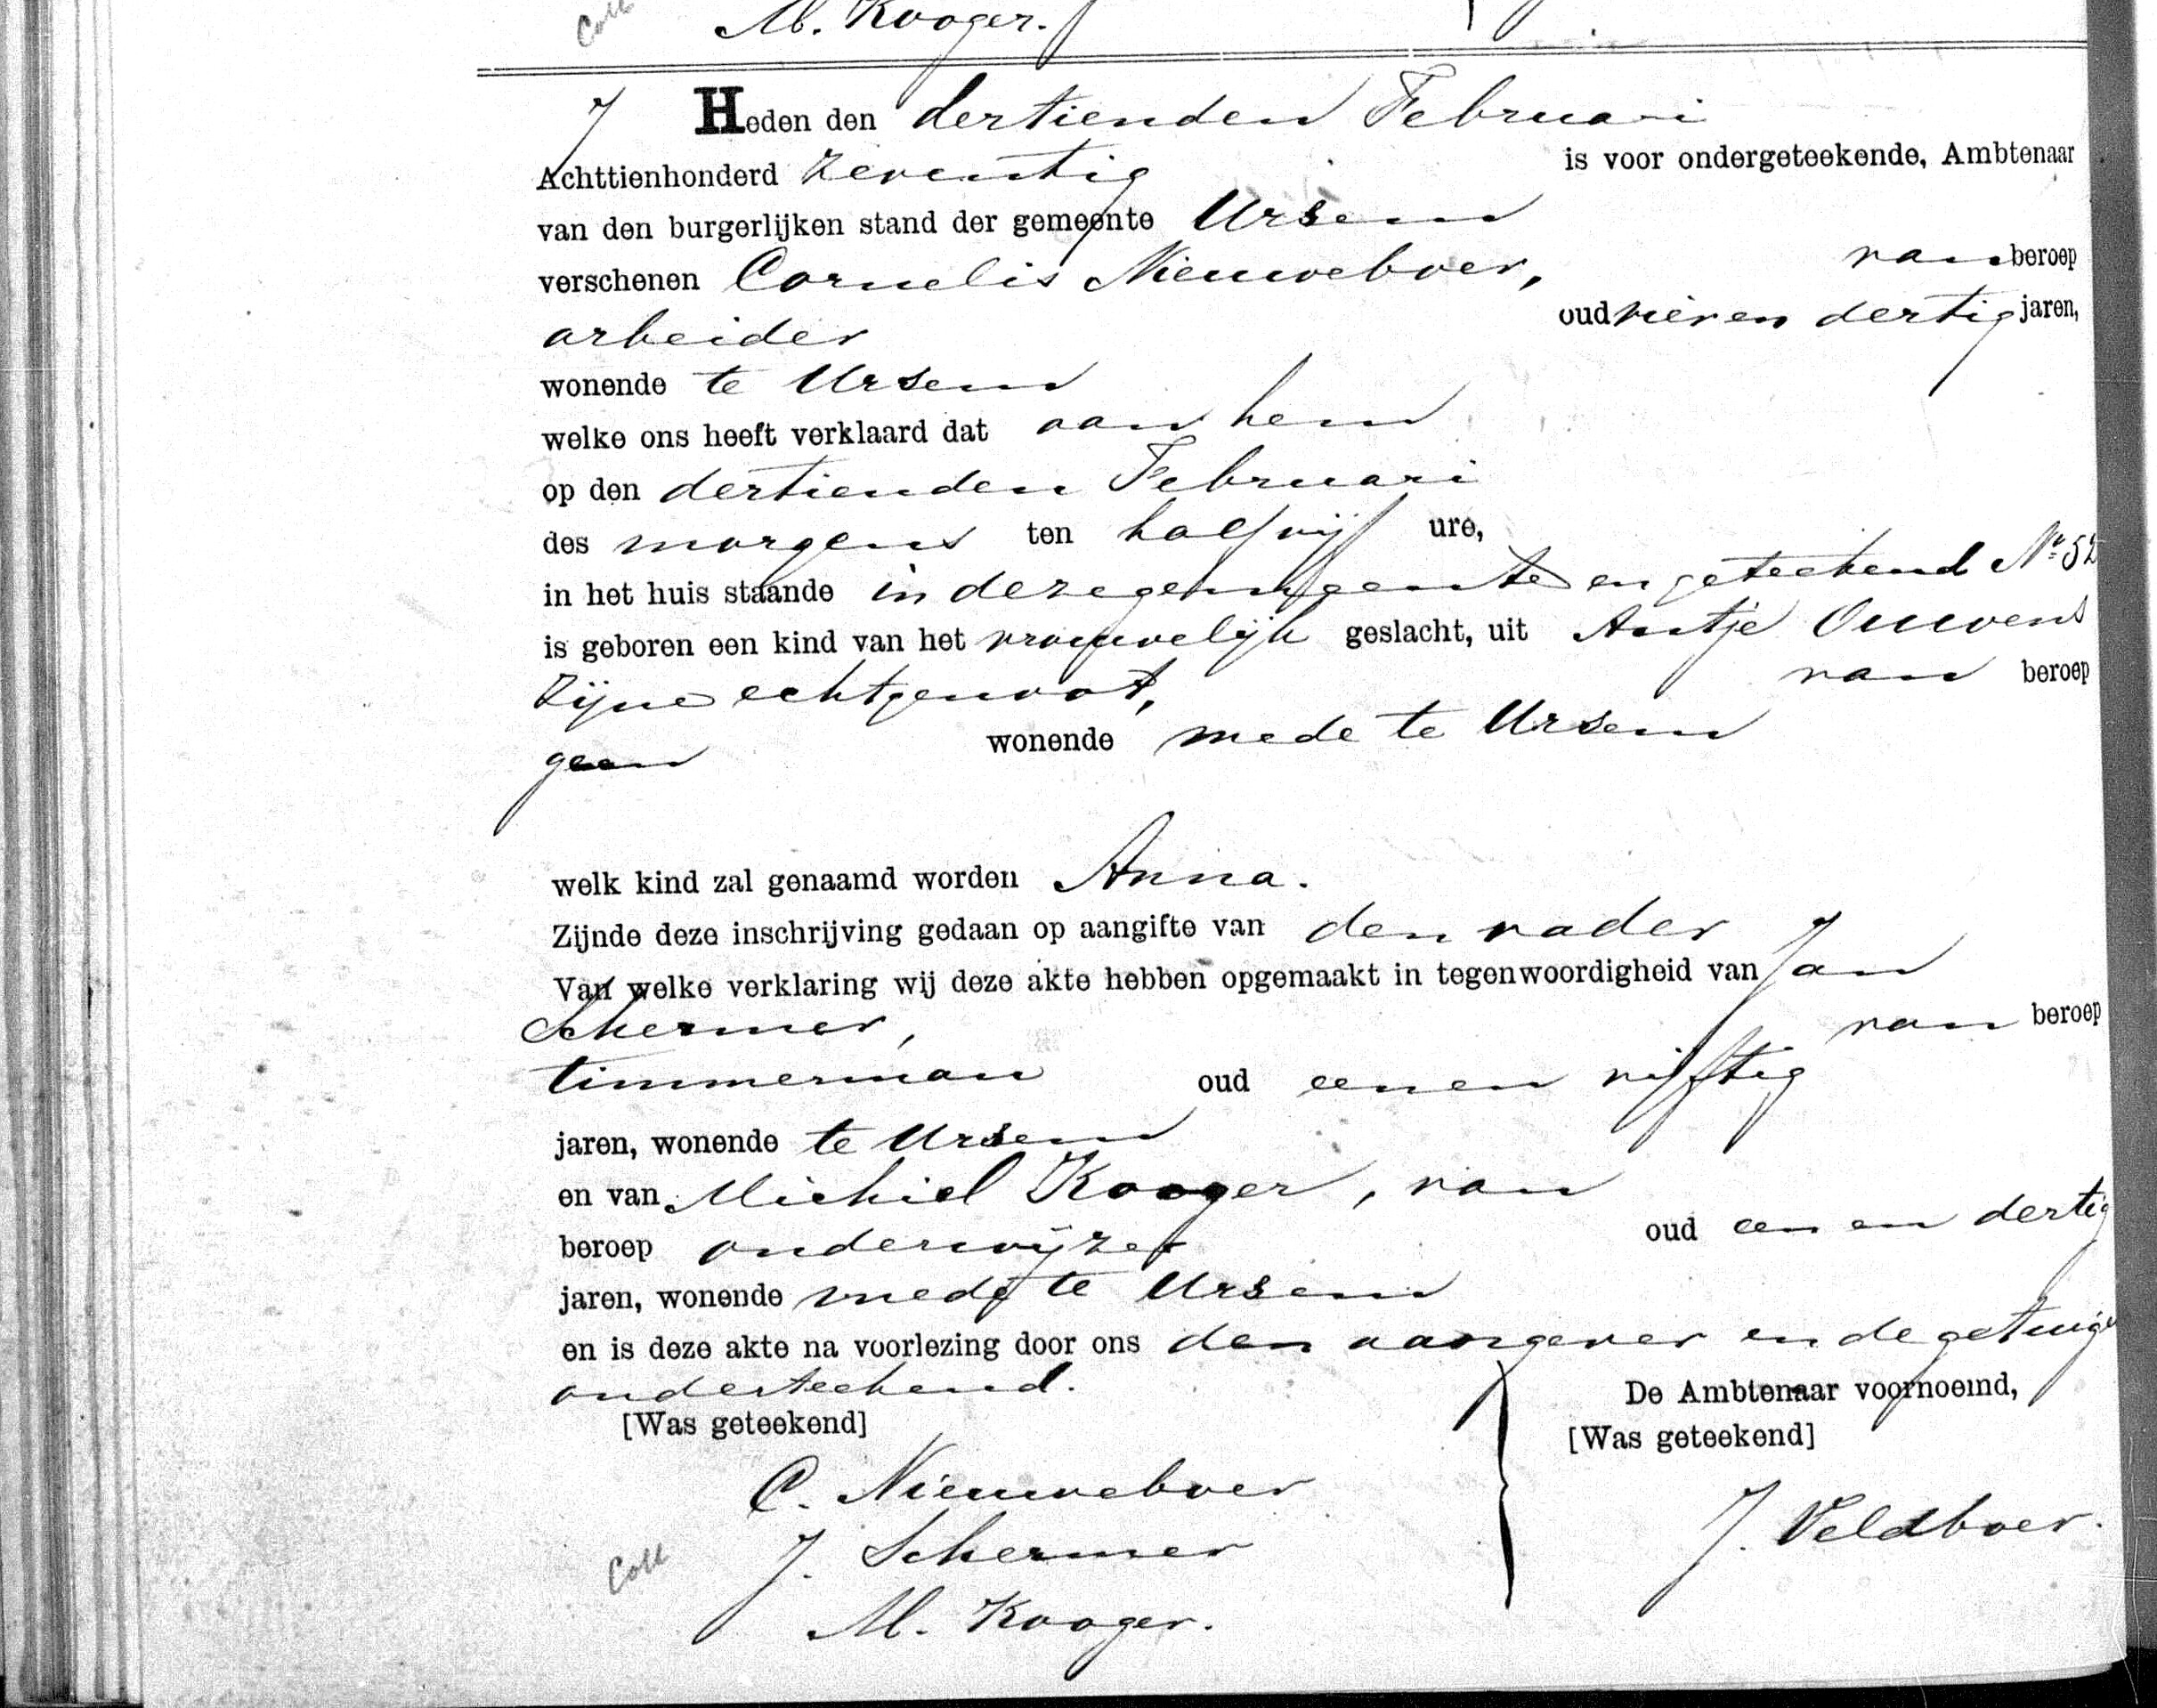 Coll M. Kooger.
7 Heden den dertienden Februari
Achttienhonderd zeventig is voor ondergeteekende, Ambtenaar
van den burgerlijken stand der gemeente Ursem
verschenen Cornelis Nieuweboer, van beroep
arbeider oud vier en dertig jaren,
wonende te Ursem
welke ons heeft verklaard dat aan hem
op den dertienden Februari
des morgens ten half vijf ure,
in het huis staande in deze gemeente en geteekend No 52
is geboren een kind van het vrouwelijk geslacht, uit Antje Ouwens
zijne echtgenoot, van beroep
geen wonende mede te Ursem
welk kind zal genaamd worden Anna.
Zijnde deze inschrijving gedaan op aangifte van den vader
Van welke verklaring wij deze akte hebben opgemaakt in tegenwoordigheid van Jan
Schermer, van beroep
timmerman oud een en vijftig
jaren, wonende te Ursem
en van Michiel Kooger, van
beroep onderwijzer oud een en dertig
jaren, wonende mede te Ursem
en is deze akte na voorlezing door ons den aangever en de getuige
onderteekend.
[Was geteekend]
C. Nieuweboer
J. Schermer
Coll M. Kooger.
De Ambtenaar voornoemd,
[Was geteekend]
J. Veldboer.